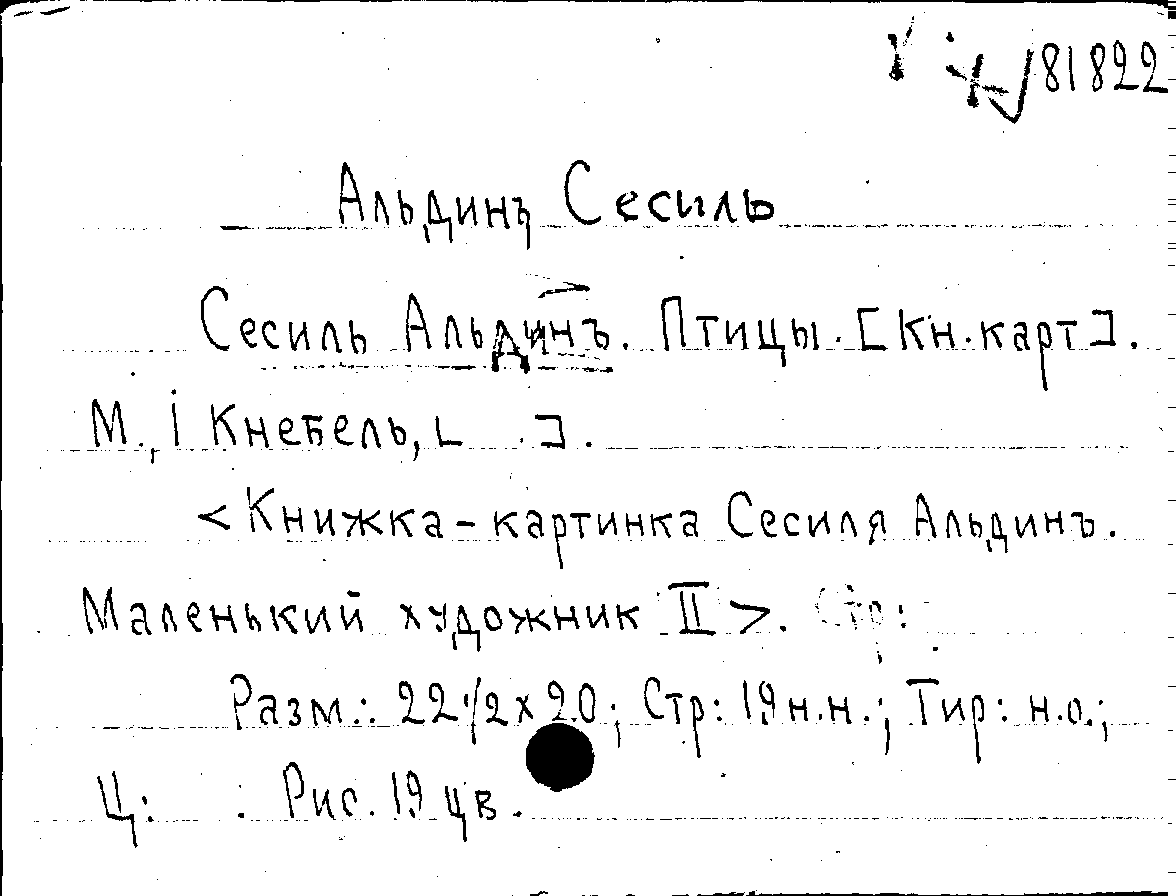 81822
Альдинъ Сесиль
Сесиль Альдинъ. Птицы. [Кн. карт].
М., І Кнебель, [ ].
<Книжка-картинка Сесиля Альдинъ.
Маленький художник II>. Стр:
Разм.: 22 1/2 x 20; Стр: 19 н.н.; Тир: н.о.;
Ц: . Рис. 19 цв.